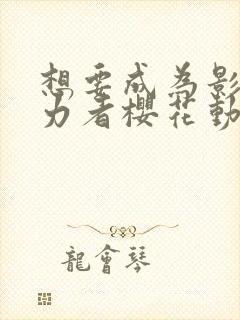 想要成为影
力者櫻花動
龍會琴